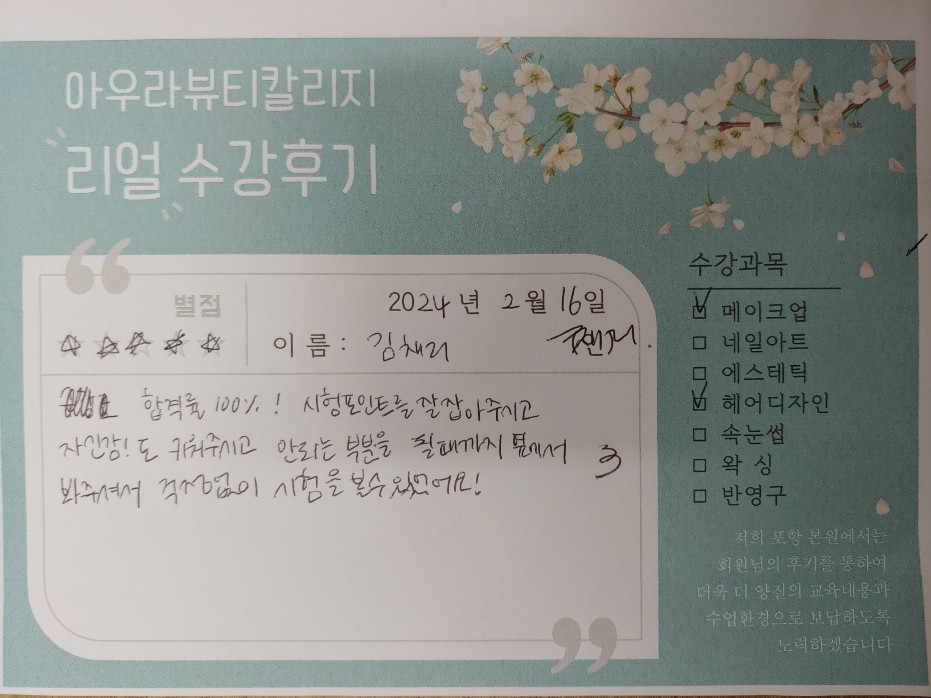 아우라뷰티칼리지
리얼 수강후기
별점
2024년 2월 16일
이름: 김채리
합격률 100%! 시험포인트를 잘 잡아주시고
자신감!도 키워주시고 안되는 부분을 될때까지 옆에서
봐주셔서 걱정없이 시험을 볼수있었어요!
3
수강과목
메이크업
네일아트
에스테틱
헤어디자인
속눈썹
왁싱
반영구
저희 포항 본원에서는
회원님의 후기를 통하여
더욱 더 양질의 교육내용과
수업환경으로 보답하도록
노력하겠습니다